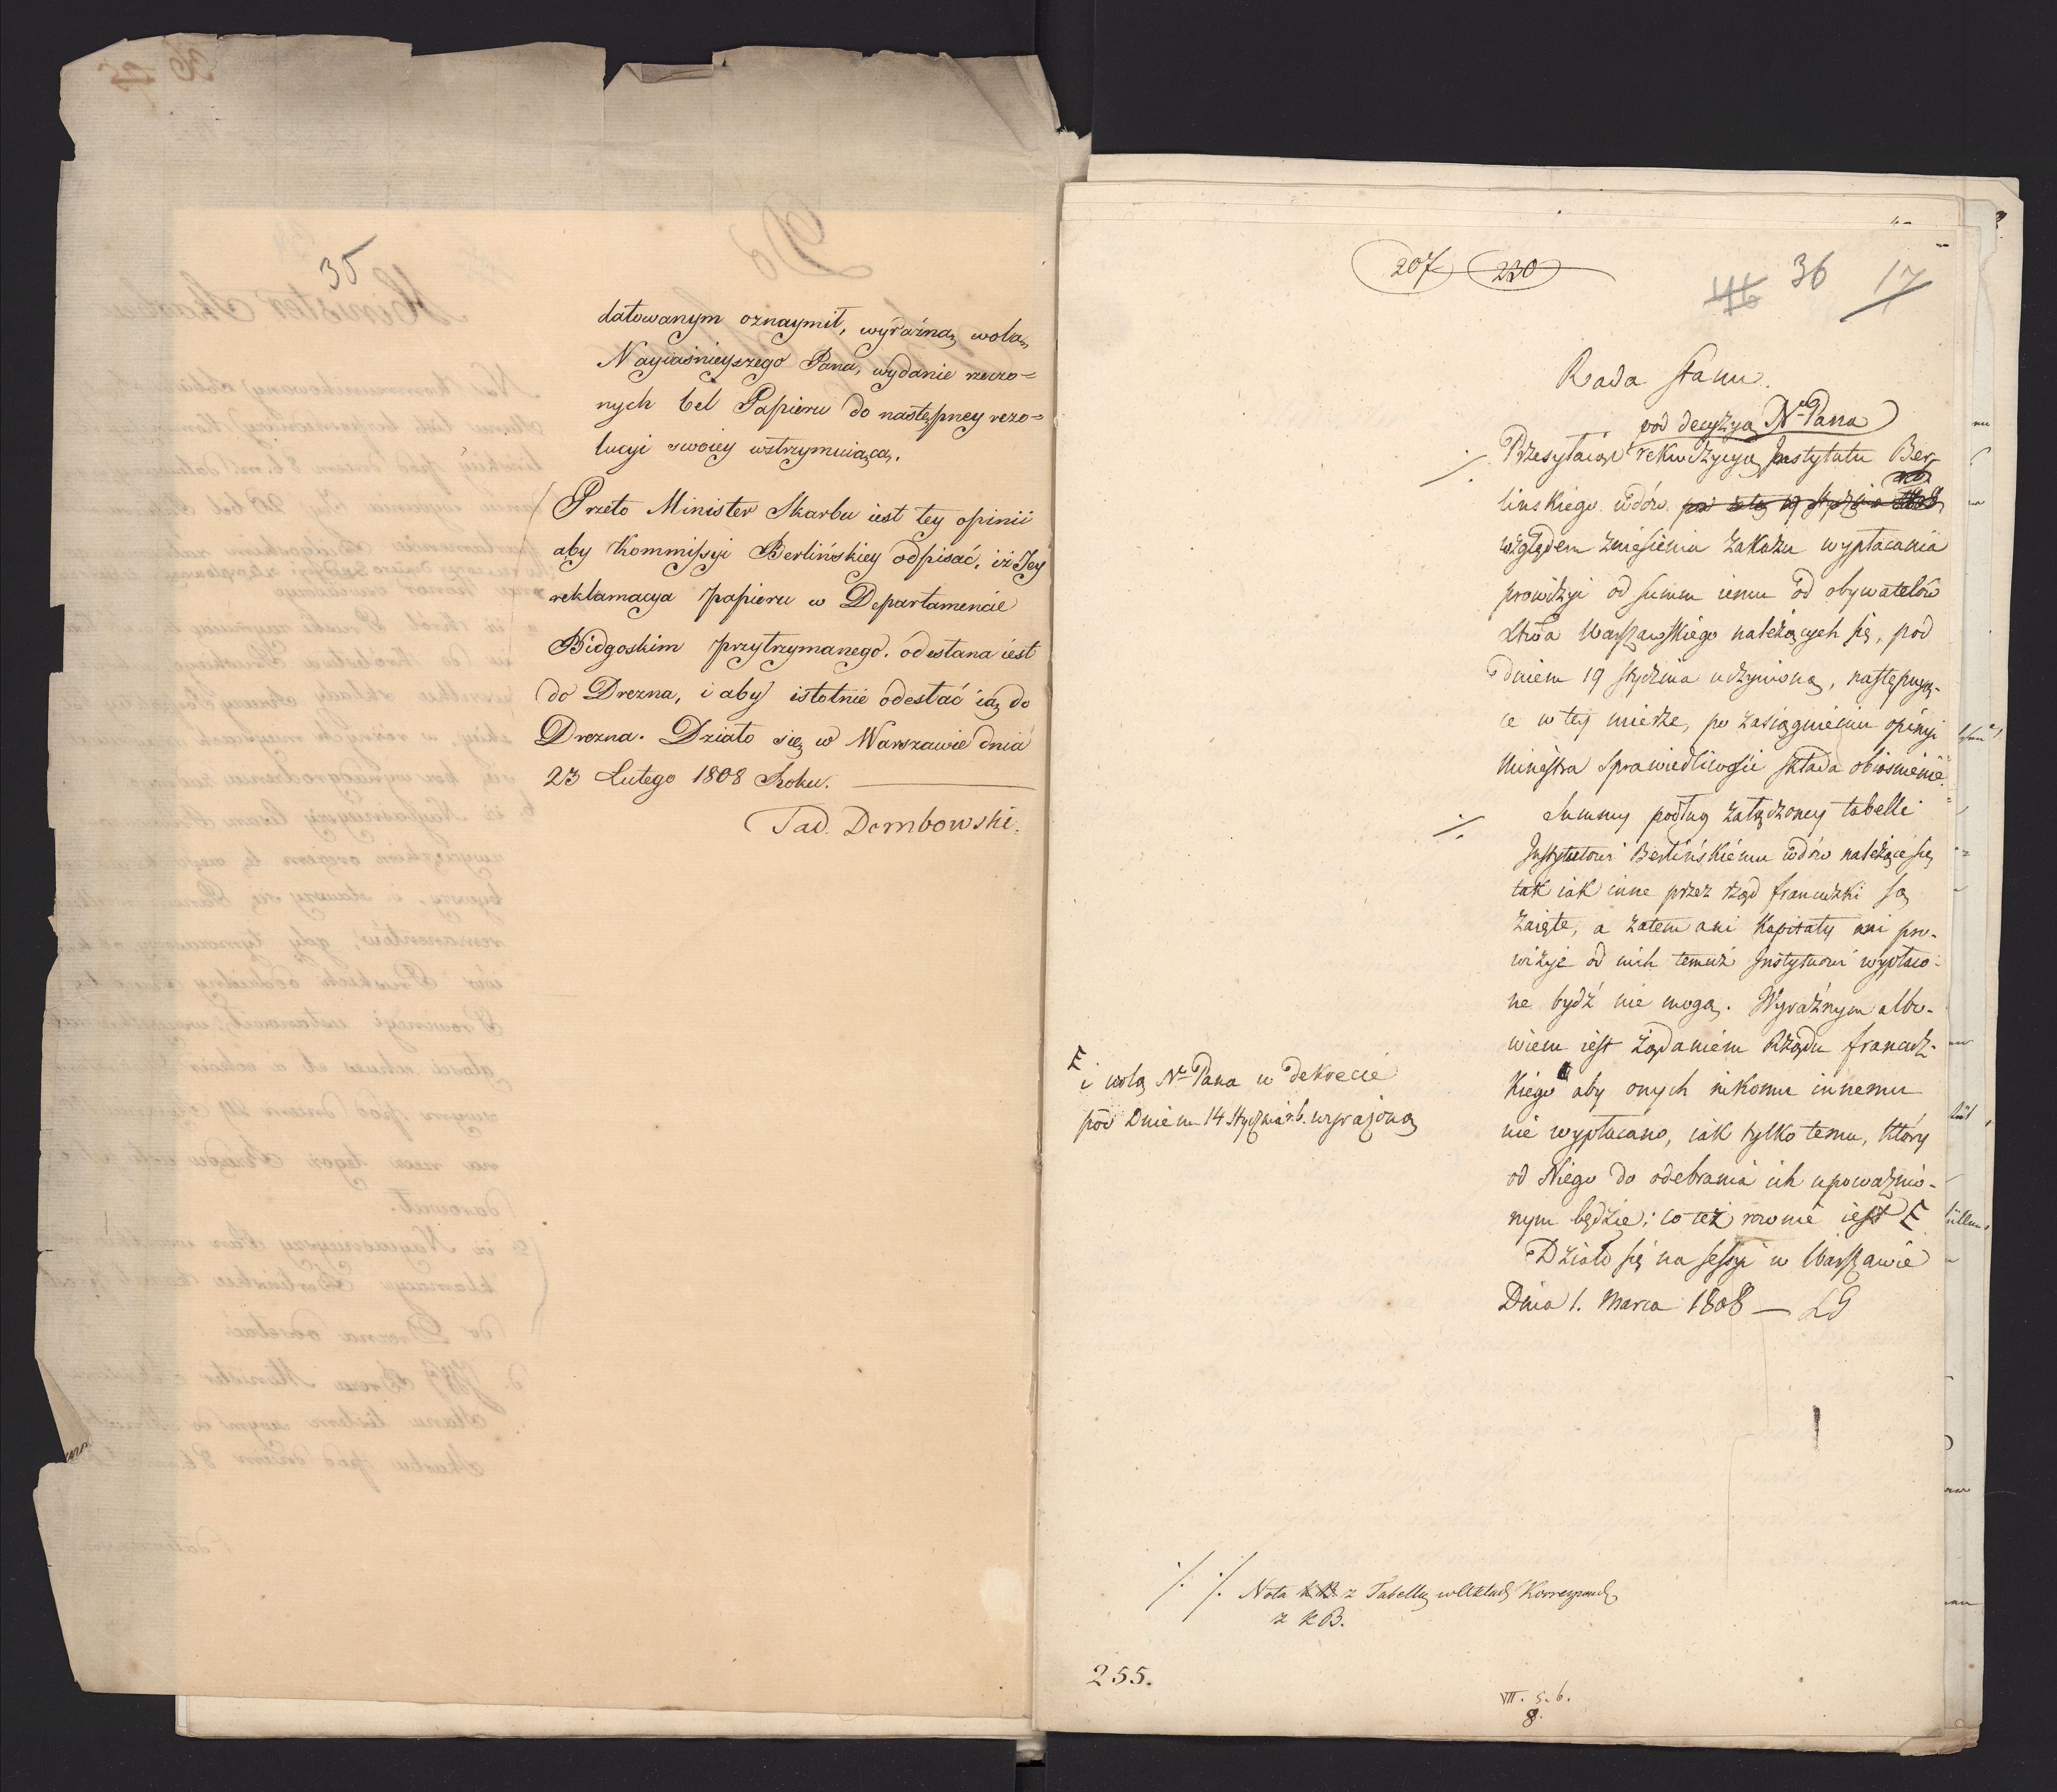 35
datowanym oznaymił, wyraźną wolą
Nayiaśnieyszego Pana, wydanie rzeczo=
nych bel Papieru do następney rezo=
lucyi swoiey wstrzymuiącą.
Przeto Minister Skarbu iest tey opinii
aby Kommissyi Berlińskiey odpisać, iż Jey
reklamacya papieru w Departamencie
Bidgoskim przytrzymanego, odesłana iest
do Drezna, i aby istotnie odesłać ią do
Drezna. Działo się w Warszawie dnia
23 Lutego 1808 Roku.
Tad. Dembowski.
207 230
36 17
Rada Stanu.
pod decyzyą N. Pana
Przesyłaiąc rekwizycyą Instytutu Ber-
lińskiego wdów
względem zniesienia zakazu wypłacania
prowizyi od summ iemu od obywatelów
Xtwa Warszawskiego należących się, pod
dniem 19 stycznia uczynioną, następuią-
ce w tey mierze, po zasiągnieniu opinyi
Ministra Sprawiedliwości składa obiaśnienie.
Summy podług załączoney tabelli
Instytutowi Berlińskiemu wdów należące się
tak iak inne przez rząd francuzki są
zaięte, a zatem ani kapitały ani pro-
wizye od nich temuż Instytutowi wypłaco-
ne bydź nie mogą. Wyraźnym albo-
wiem iest żądaniem Rządu francuz-
kiego aby onych nikomu innemu
nie wypłacano, iak tylko temu, który
od Niego do odebrania ich upoważnio-
nym będzie; co też rownie iest E
E
i wolą N. Pana w Dekrecie
pod Dniem 14 Stycznia r.b. wyrażoną
Działo się na Sessyi w Warszawie
Dnia 1. Marca 1808 — LG
Nota z Tabellą Korrespond
z K B.
255.
VIII. 5. b.
8.